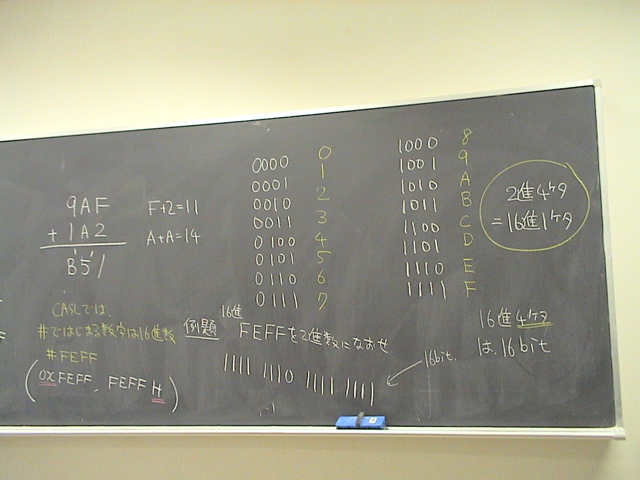 9AF
+ 1A2
B51
F+2=11
A+A=14
0000 0
0001 1
0010 2
0011 3
0100 4
0101 5
0110 6
0111 7
1000 8
1001 9
1010 A
1011 B
1100 C
1101 D
1110 E
1111 F
2進4ケタ
=16進1ケタ
CASLでは、
#ではじまる数字は16進数
#FEFF
(0XFEFF、FEFF H)
例題
16進
FEFFを2進数になおせ
1111 1110 1111 1111
16bit.
16進4ケタ
は、16bit